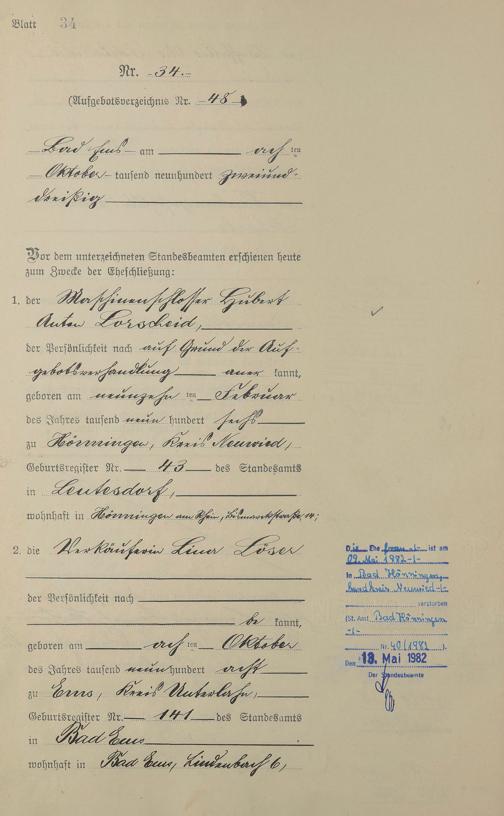 Blatt 34
Nr. 34.
(Aufgebotsverzeichnis Nr. 48
Bad Ems am achten
Oktober tausend neunhundert zweiund-
dreißig
Vor dem unterzeichneten Standesbeamten erschienen heute
zum Zwecke der Eheschließung:
1. der Maschinenschlosser Hubert
Anton Lorscheid,
der Persönlichkeit nach auf Grund der Auf-
gebotsverhandlung anerkannt,
geboren am neunzehnten Februar
des Jahres tausend neunhundert sechs
zu Hönningen, Kreis Neuwied,
Geburtsregister Nr. 43 des Standesamts
in Leutesdorf,
wohnhaft in Hönningen am Rhein, Bismarckstraße 14;
2. die Verkäuferin Lina Löser
der Persönlichkeit nach
bekannt,
geboren am achten Oktober
des Jahres tausend neunhundert acht
zu Ems, Kreis Unterlahn,
Geburtsregister Nr. 141 des Standesamts
in Bad Ems
wohnhaft in Bad Ems, Lindenbach 6,
Die Ehefrau ist am
09. Mai 1982
in Bad Hönningen,
Landkreis Neuwied
verstorben
(St. Amt Bad Hönningen
Nr. 40/1982 ).
Den 13. Mai 1982
Der Standesbeamte